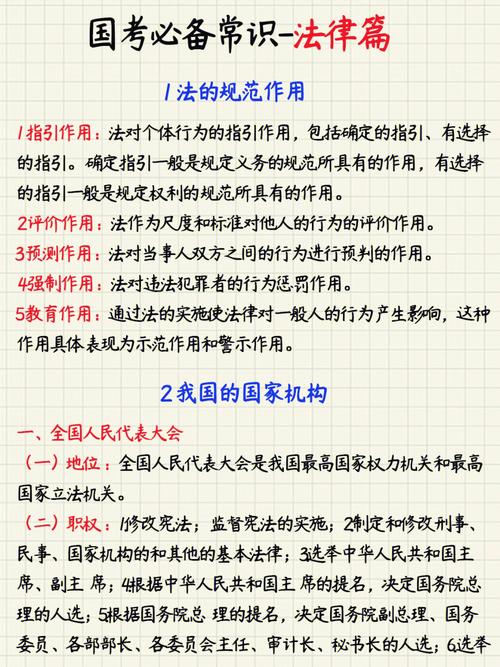 国考必备常识-法律篇
1法的规范作用
1指引作用：法对个体行为的指引作用，包括确定的指引、有选择
的指引。确定指引一般是规定义务的规范所具有的作用，有选择
的指引一般是规定权利的规范所具有的作用。
2评价作用：法作为尺度和标准对他人的行为的评价作用。
3预测作用：法对当事人双方之间的行为进行预判的作用。
4强制作用：法对违法犯罪者的行为惩罚作用。
5教育作用：通过法的实施使法律对一般人的行为产生影响，这种
作用具体表现为示范作用和警示作用。
2我国的国家机构
一、全国人民代表大会
（一）地位：全国人民代表大会是我国最高国家权力机关和最高
国家立法机关。
（二）职权：1修改宪法；监督宪法的实施；2制定和修改刑事、
民事、国家机构的和其他的基本法律；3选举中华人民共和国主
席、副主 席；4根据中华人民共和国主 席的提名，决定国务院总
理的人选；5根据国务院总 理的提名，决定国务院副总理、国务
委员、各部部长、各委员会主任、审计长、秘书长的人选；6选举